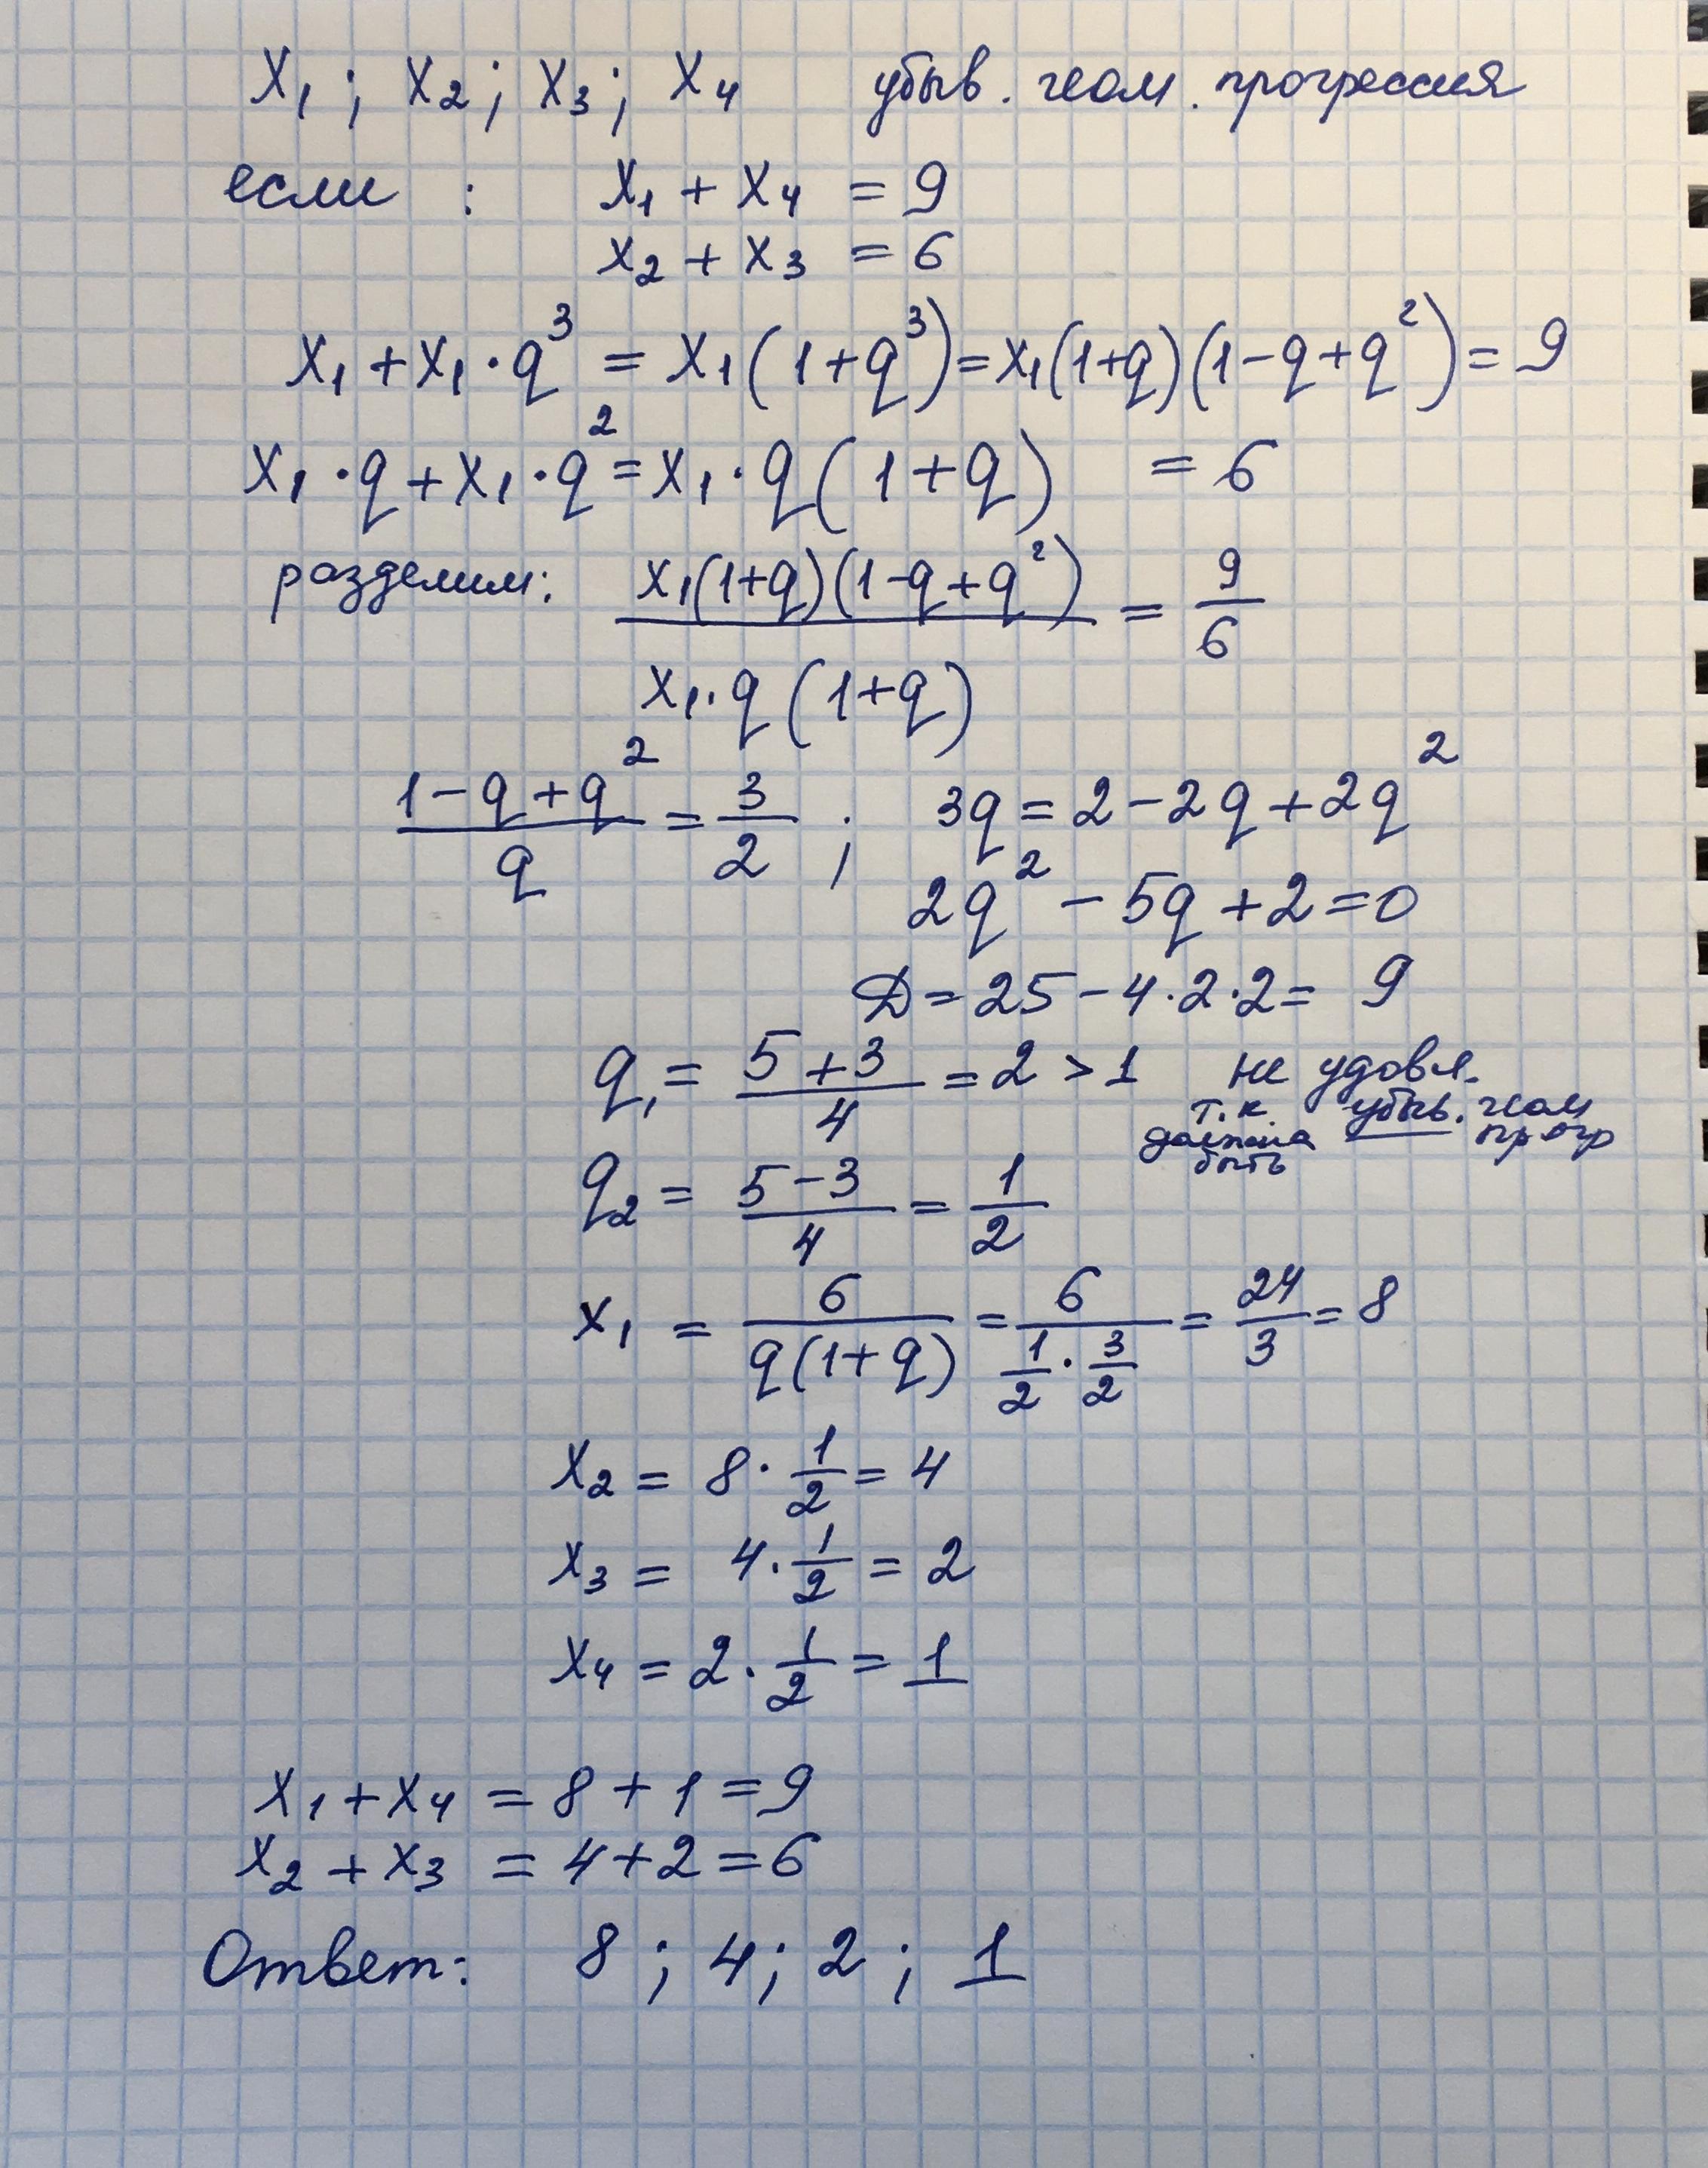 x₁ ; x₂ ; x₃ ; x₄ убыв. геом. прогрессия
если : x₁ + x₄ = 9
x₂ + x₃ = 6
x₁ + x₁ · q³ = x₁ (1+q³) = x₁(1+q)(1-q+q²) = 9
x₁ · q + x₁ · q² = x₁ · q (1+q) = 6
разделим: x₁(1+q)(1-q+q²) / x₁ · q (1+q) = 9/6
1-q+q² / q = 3/2 ; 3q = 2-2q+2q²
2q² - 5q + 2 = 0
Д = 25 - 4·2·2 = 9
q₁ = 5+3 / 4 = 2 > 1 не удовл.
т.к убыв. геом
должна прогр
быть
q₂ = 5-3 / 4 = 1/2
x₁ = 6 / q(1+q) = 6 / 1/2 · 3/2 = 24/3 = 8
x₂ = 8 · 1/2 = 4
x₃ = 4 · 1/2 = 2
x₄ = 2 · 1/2 = 1
x₁ + x₄ = 8 + 1 = 9
x₂ + x₃ = 4+2 = 6
Ответ: 8 ; 4 ; 2 ; 1